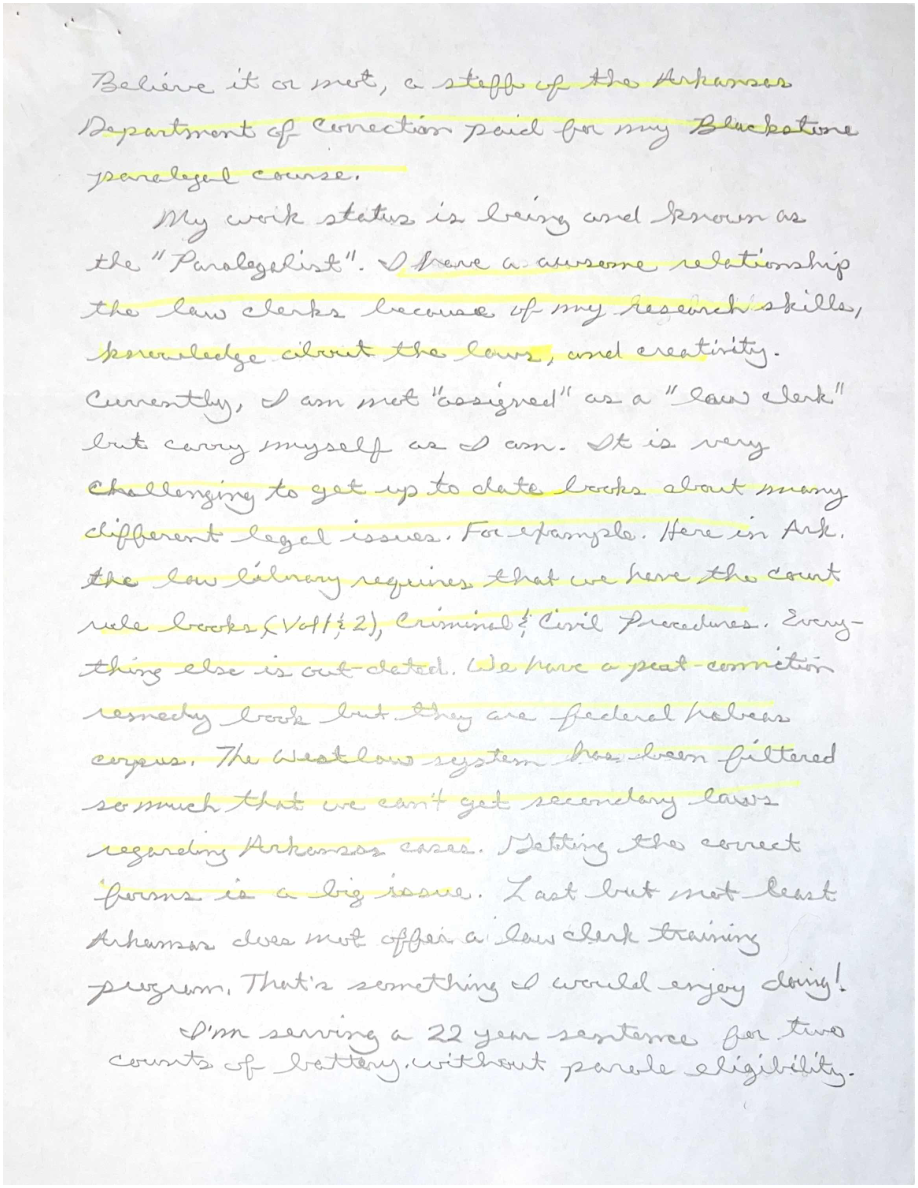 Believe it or not, a staff of the Arkansas
Department of Correction paid for my Blackstone
paralegal course.
My work status is being and known as
the "Paralegalist". I have a awsome relationship
the law clerks because of my research skills,
knowledge about the laws, and creativity.
Currently, I am not "assigned" as a "law clerk"
but carry myself as I am. It is very
challenging to get up to date books about many
different legal issues. For example. Here in Ark.
the law library requires that we have the court
rule books (Vol 1 & 2), Criminal & Civil Procedures. Every-
thing else is out-dated. We have a post-conviction
remedy book but they are federal habeas
corpus. The Westlaw system has been filtered
so much that we can't get secondary laws
regarding Arkansas cases. Getting the correct
forms is a big issue. Last but not least
Arkansas does not offer a law clerk training
program. That's something I would enjoy doing!
I'm serving a 22 year sentence for two
counts of battery without parole eligibility.